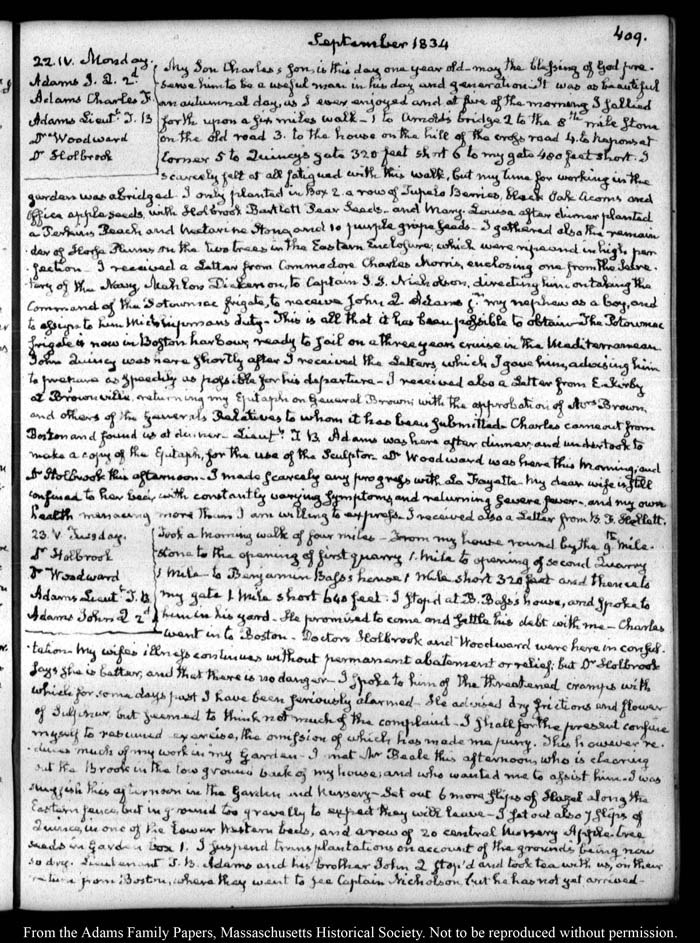 September 1834
409.
22. IV. Monday.
Adams J. Q. 2d
Adams Charles F.
Adams Lieutt. T. B
Dr Woodward
Dr Holbrook
My Son Charles's son is this day one year old—may the blessing of God pre-
serve him to be a useful man in his day and generation. It was as beautiful
an autumnal day, as I ever enjoyed and at five of the morning I sallied
forth upon a six miles walk—1 to Arnold's bridge 2 to the 8th mile stone
on the old road 3. to the house on the hill of the cross road 4. to
corner 5 to Quincy's gate 320 feet short 6 to my gate 400 feet short. I
scarcely felt at all fatigued with this walk, but my time for working in the
garden was abridged. I only planted in Box 2. a row of Tupelo Berries, Black Oak Acorns and
Office apple seeds, with Holbrook Bartlett Pear seeds—and Mary Louisa after dinner planted
a Perkins Peach and Nectarine Stone, and 10 purple grape seeds—I gathered also the remain-
der of Horse Plums on the two trees in the Eastern Enclosure, which were ripe and in high per-
fection—I received a Letter from Commodore Charles Morris, enclosing one from the Secre-
tary of the Navy Mahlon Dickerson, to Captain J. J. Nicholson, directing him on taking the
Command of the Potowmac frigate, to receive John Q. Adams my nephew as a boy, and
to assign to him Midshipman's duty—This is all that it has been possible to obtain—The Potowmac
frigate is now in Boston harbour, ready to sail on a three years cruise in the Mediterranean
John Quincy was here shortly after I received the Letters, which I gave him, advising him
to prepare as speedily as possible for his departure—I received also a Letter from E. Kirby
at Brownville, returning my Epitaph on General Brown; with the approbation of Mrs Brown,
and others of the General's Relatives to whom it has been submitted. Charles came out from
Boston and found us at dinner—Lieutt. T. B. Adams was here after dinner, and undertook to
make a copy of the Epitaph, for the use of the Sculptor—Dr Woodward was here this Morning, and
Dr Holbrook this afternoon—I made scarcely any progress with La Fayette. My dear wife is still
confined to her bed, with constantly varying symptoms, and returning severe fever—and my own
health menacing more than I am willing to express. I received also a Letter from B. F. Hallett.
23. V. Tuesday.
Dr Holbrook
Dr Woodward
Adams Lieutt. T. B
Adams John Q 2d
Took a Morning walk of four miles—From my house round by the 9th Mile-
stone to the opening of first quarry 1. Mile to opening of second Quarry
1 Mile—to Benjamin Bass's house 1 Mile short 320 feet and thence to
my gate 1 Mile short 640 feet. I stop'd at B. Bass's house, and spoke to
him in his yard—He promised to come and settle his debt with me—Charles
went in to Boston—Doctors Holbrook and Woodward were here in consul-
tation. My wife's illness continues without permanent abatement or relief; but Dr Holbrook
says she is better, and that there is no danger—I spoke to him of the threatened cramps with
which for some days past I have been seriously alarmed—He advised dry frictions and flower
of Sulphur, but seemed to think not much of the complaint—I shall for the present confine
myself to resumed exercise, the omission of which has made me puny. This however re-
duces much of my work in my Garden—I met Mr Beale this afternoon, who is clearing
out the Brook in the low ground back of my house, and who wanted me to assist him—I was
sluggish this afternoon in the Garden and Nursery—Set out 6 more slips of Hazel along the
Eastern fence, but in ground too gravelly to expect they will leave—I set out also 7 slips of
Quince, in one of the Lower Western beds, and a row of 20 central Nursery Apple-tree
seeds in Garden box 1. I suspend transplantations on account of the ground's being now
so dry. Lieutenant T. B. Adams and his brother John Q. stop'd and took tea with us, on their
return from Boston, where they went to see Captain Nicholson but he has not yet arrived—
From the Adams Family Papers, Massachusetts Historical Society. Not to be reproduced without permission.